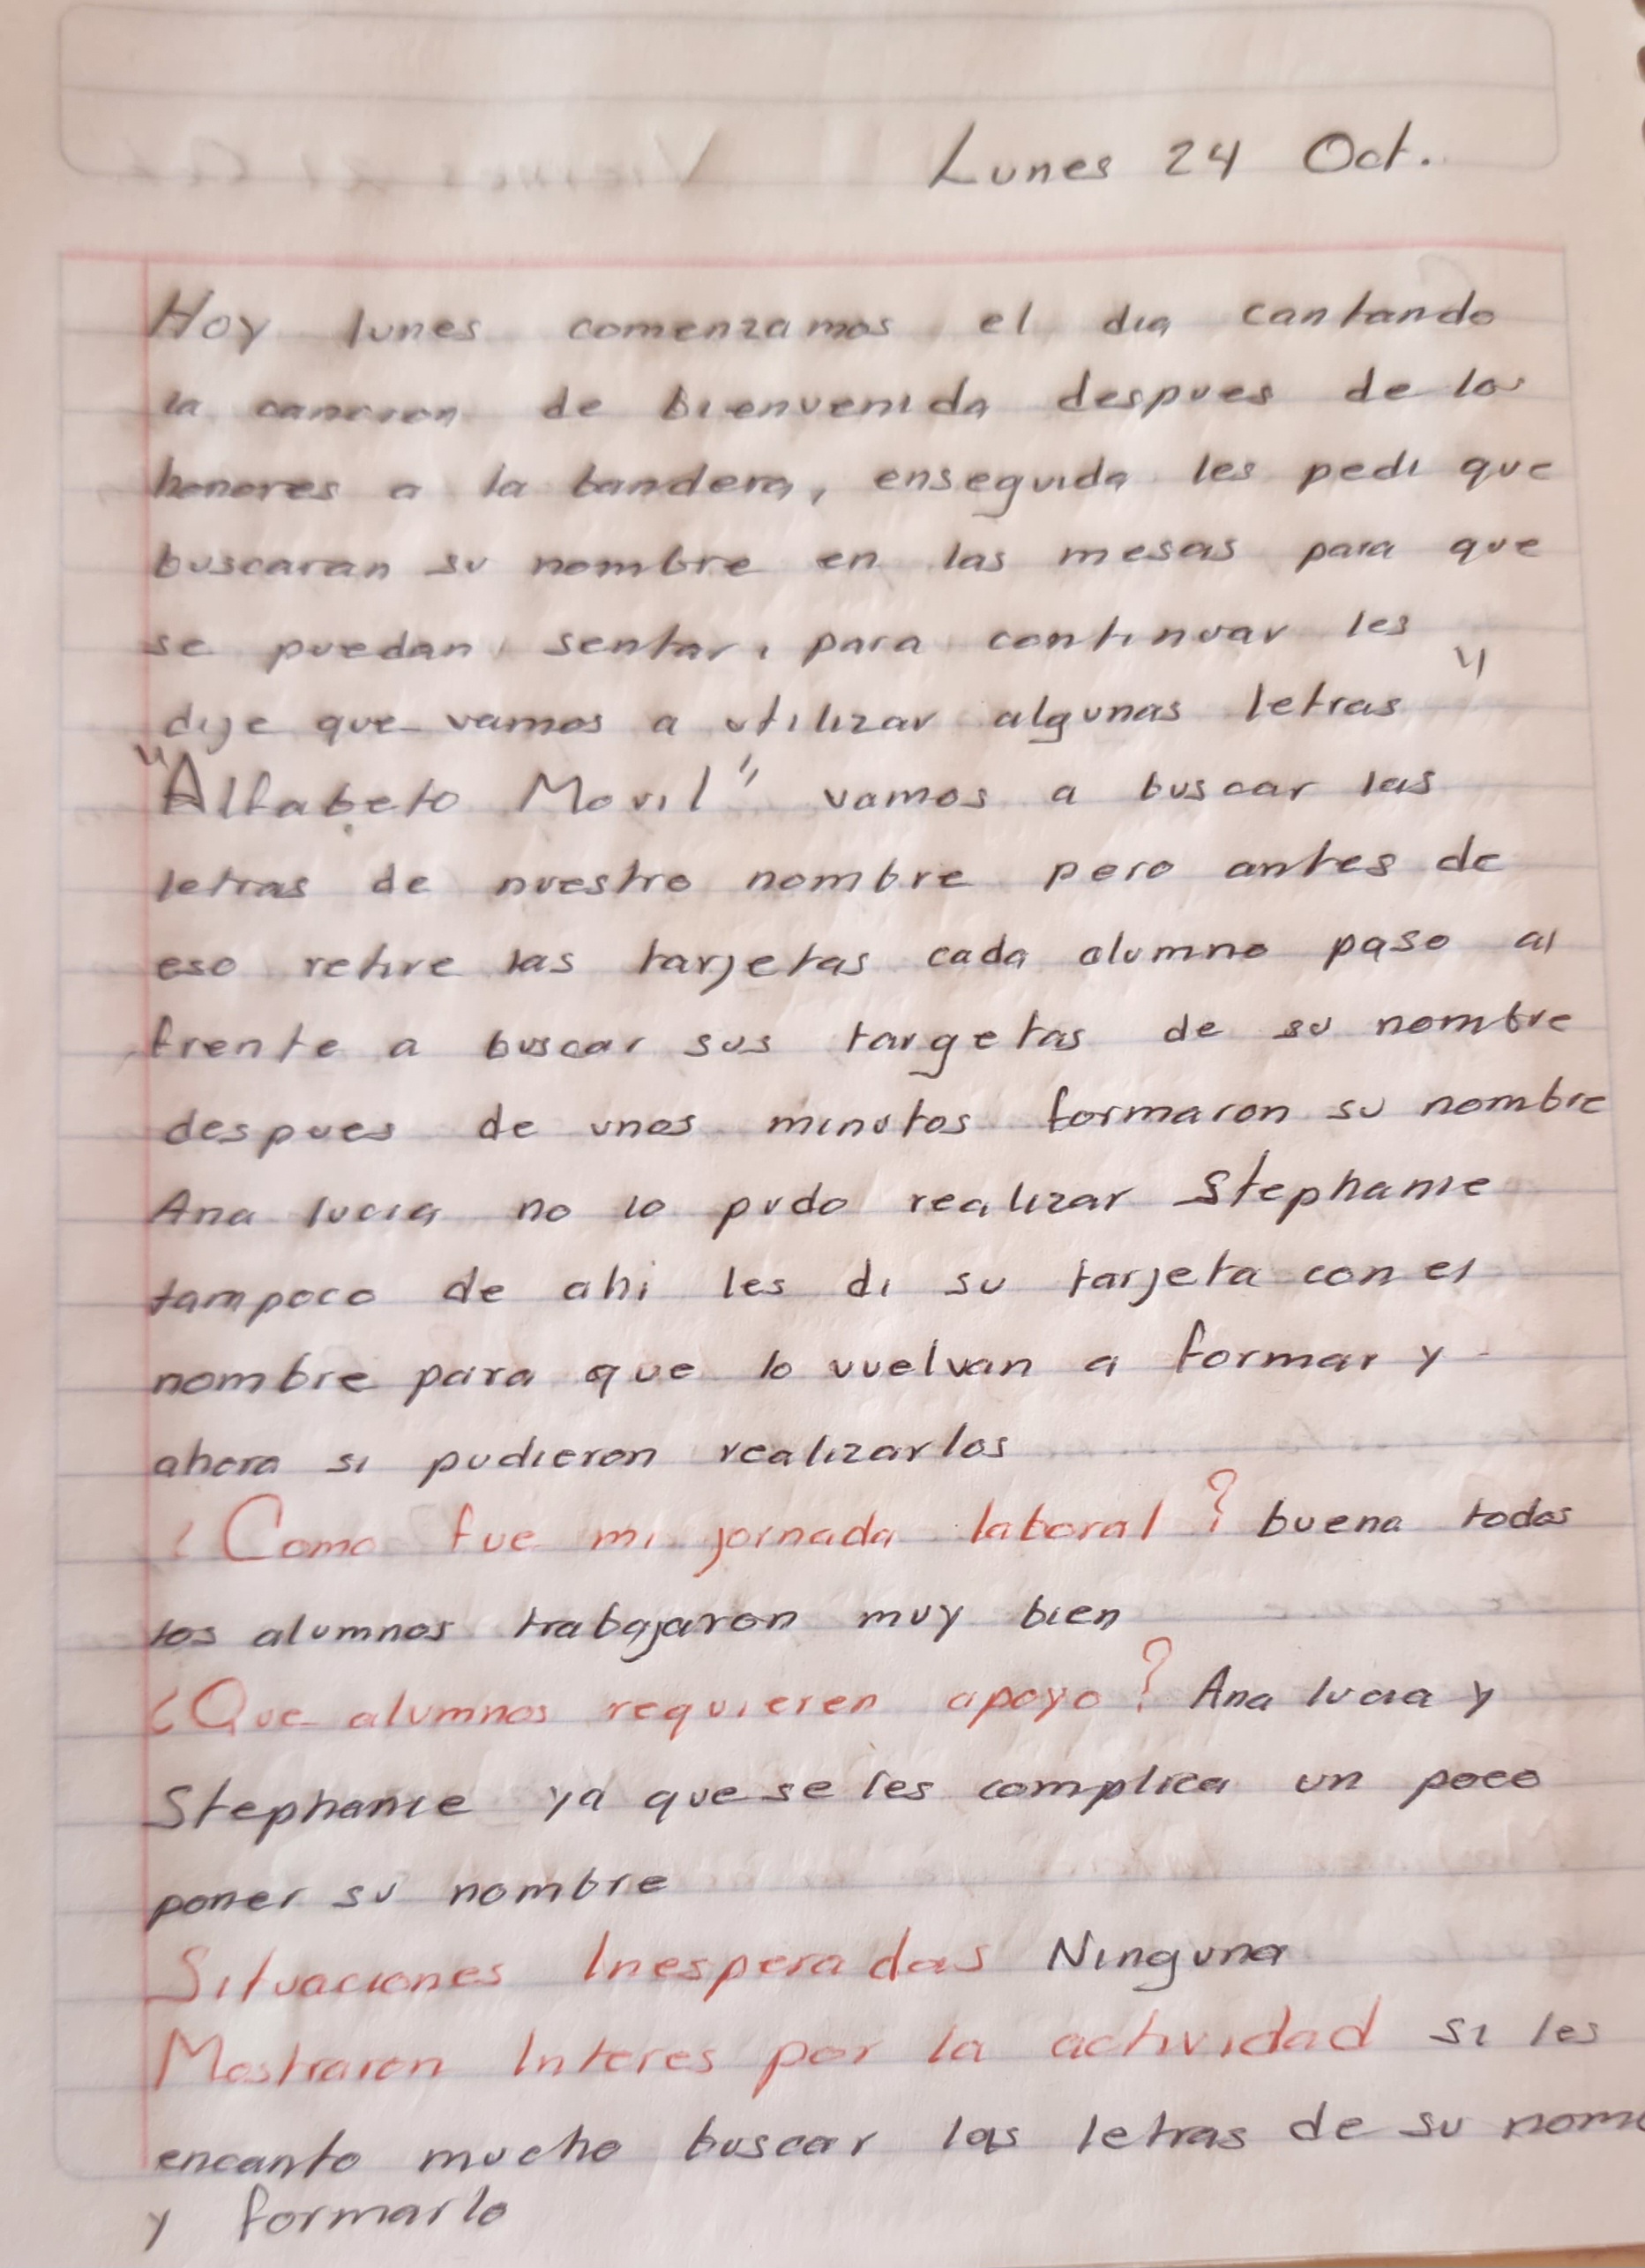 Lunes 24 Oct.
Hoy lunes comenzamos el dia cantando
la cancion de bienvenida despues de los
honores a la bandera, enseguida les pedi que
buscaran su nombre en las mesas para que
se puedan sentar, para continuar les
dije que vamos a utilizar algunas letras "
"Alfabeto Movil" vamos a buscar las
letras de nuestro nombre pero antes de
eso retire las tarjetas cada alumno paso al
frente a buscar sus targetas de su nombre
despues de unos minutos formaron su nombre
Ana lucia no lo pudo realizar Stephanie
tampoco de ahi les di su tarjeta con el
nombre para que lo vuelvan a formar y
ahora si pudieron realizarlos
¿Como fue mi jornada laboral? buena todos
los alumnos trabajaron muy bien
¿Que alumnos requieren apoyo? Ana lucia y
Stephanie ya que se les complica un poco
poner su nombre
Situaciones Inesperadas Ninguna
Mostraron Interes por la actividad si les
encanto mucho buscar las letras de su nom
y formarlo